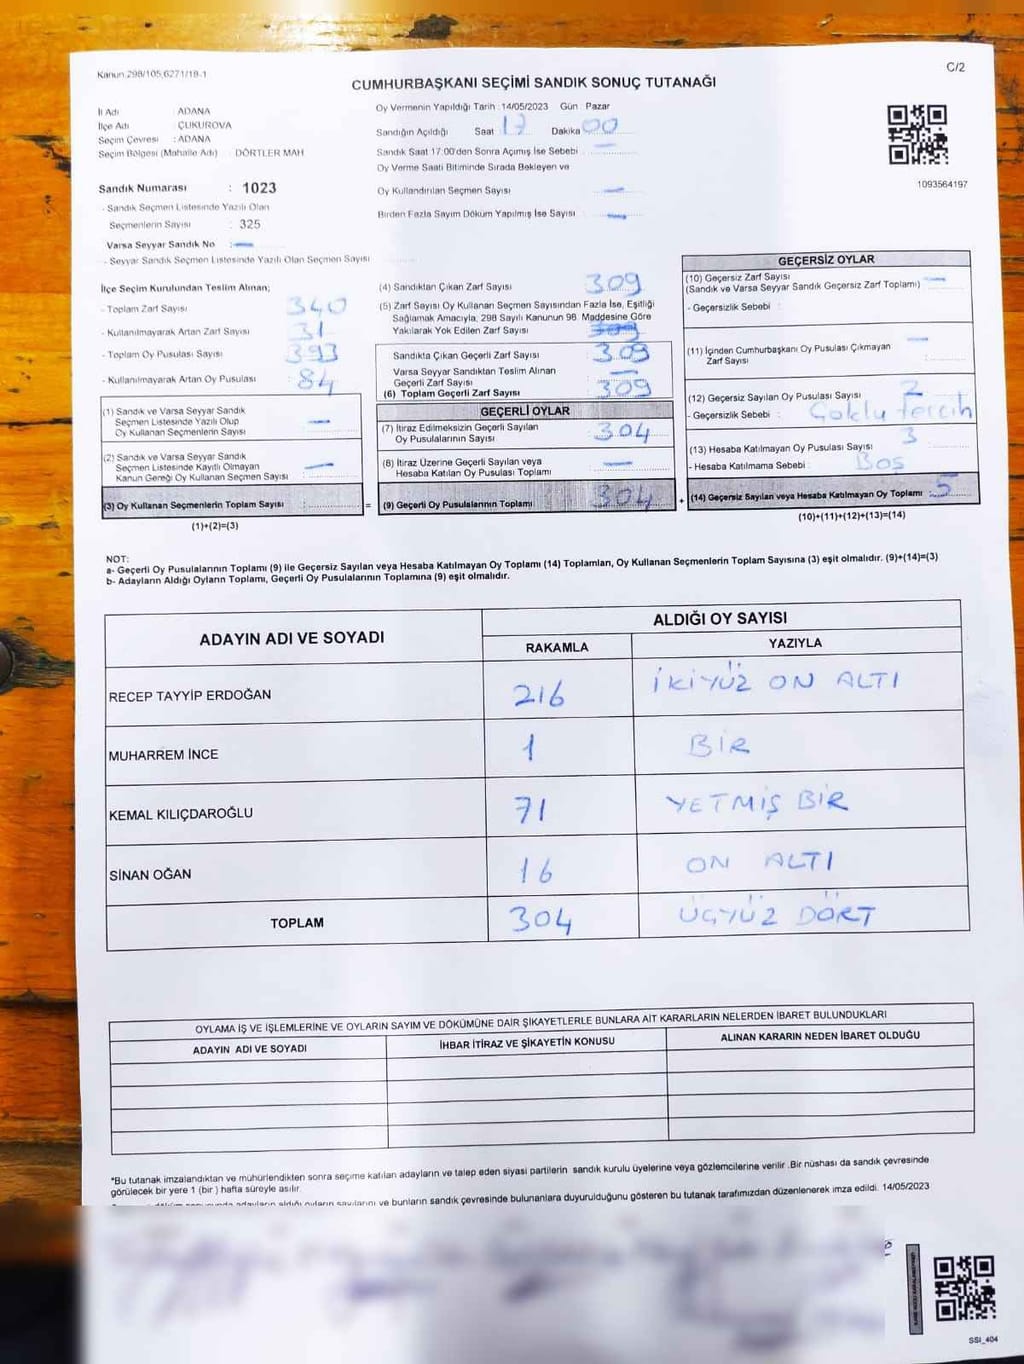 Kanun 298/105,6271/18-1
C/2
CUMHURBAŞKANI SEÇİMİ SANDIK SONUÇ TUTANAĞI
İl Adı : ADANA
İlçe Adı : ÇUKUROVA
Seçim Çevresi : ADANA
Seçim Bölgesi (Mahalle Adı) : DÖRTLER MAH
Sandık Numarası : 1023
- Sandık Seçmen Listesinde Yazılı Olan
Seçmenlerin Sayısı : 325
Varsa Seyyar Sandık No : —
- Seyyar Sandık Seçmen Listesinde Yazılı Olan Seçmen Sayısı
Oy Vermenin Yapıldığı Tarih : 14/05/2023 Gün : Pazar
Sandığın Açıldığı Saat 17 Dakika 00
Sandık Saat 17:00'den Sonra Açımış İse Sebebi —
Oy Verme Saati Bitiminde Sırada Bekleyen ve
Oy Kullandırılan Seçmen Sayısı —
Birden Fazla Sayım Döküm Yapılmış İse Sayısı —
1093564197
İlçe Seçim Kurulundan Teslim Alınan;
- Toplam Zarf Sayısı : 340
- Kullanılmayarak Artan Zarf Sayısı : 31
- Toplam Oy Pusulası Sayısı : 393
- Kullanılmayarak Artan Oy Pusulası : 84
(1) Sandık ve Varsa Seyyar Sandık
Seçmen Listesinde Yazılı Olup
Oy Kullanan Seçmenlerin Sayısı : —
(2) Sandık ve Varsa Seyyar Sandık
Seçmen Listesinde Kayıtlı Olmayan
Kanun Gereği Oy Kullanan Seçmen Sayısı : —
(3) Oy Kullanan Seçmenlerin Toplam Sayısı :
(1)+(2)=(3)
(4) Sandıktan Çıkan Zarf Sayısı : 309
(5) Zarf Sayısı Oy Kullanan Seçmen Sayısından Fazla İse, Eşitliği
Sağlamak Amacıyla, 298 Sayılı Kanunun 98. Maddesine Göre
Yakılarak Yok Edilen Zarf Sayısı : 309
Sandıkta Çıkan Geçerli Zarf Sayısı : 309
Varsa Seyyar Sandıktan Teslim Alınan
Geçerli Zarf Sayısı : —
(6) Toplam Geçerli Zarf Sayısı : 309
GEÇERLİ OYLAR
(7) İtiraz Edilmeksizin Geçerli Sayılan
Oy Pusulalarının Sayısı : 304
(8) İtiraz Üzerine Geçerli Sayılan veya
Hesaba Katılan Oy Pusulası Toplamı : —
= (9) Geçerli Oy Pusulalarının Toplamı : 304
GEÇERSİZ OYLAR
(10) Geçersiz Zarf Sayısı
(Sandık ve Varsa Seyyar Sandık Geçersiz Zarf Toplamı) : —
- Geçersizlik Sebebi :
(11) İçinden Cumhurbaşkanı Oy Pusulası Çıkmayan
Zarf Sayısı : —
(12) Geçersiz Sayılan Oy Pusulası Sayısı : 2
- Geçersizlik Sebebi : Çoklu tercih
(13) Hesaba Katılmayan Oy Pusulası Sayısı : 3
- Hesaba Katılmama Sebebi : Bos
+ (14) Geçersiz Sayılan veya Hesaba Katılmayan Oy Toplamı : 5
(10)+(11)+(12)+(13)=(14)
NOT:
a- Geçerli Oy Pusulalarının Toplamı (9) ile Geçersiz Sayılan veya Hesaba Katılmayan Oy Toplamı (14) Toplamları, Oy Kullanan Seçmenlerin Toplam Sayısına (3) eşit olmalıdır. (9)+(14)=(3)
b- Adayların Aldığı Oyların Toplamı, Geçerli Oy Pusulalarının Toplamına (9) eşit olmalıdır.
ADAYIN ADI VE SOYADI
ALDIĞI OY SAYISI
RAKAMLA YAZIYLA
RECEP TAYYİP ERDOĞAN 216 İKİYÜZ ON ALTI
MUHARREM İNCE 1 BİR
KEMAL KILIÇDAROĞLU 71 YETMİŞ BİR
SİNAN OĞAN 16 ON ALTI
TOPLAM 304 ÜÇYÜZ DÖRT
OYLAMA İŞ VE İŞLEMLERİNE VE OYLARIN SAYIM VE DÖKÜMÜNE DAİR ŞİKAYETLERLE BUNLARA AİT KARARLARIN NELERDEN İBARET BULUNDUKLARI
ADAYIN ADI VE SOYADI İHBAR İTİRAZ VE ŞİKAYETİN KONUSU ALINAN KARARIN NEDEN İBARET OLDUĞU
*Bu tutanak imzalandıktan ve mühürlendikten sonra seçime katılan adayların ve talep eden siyasi partilerin sandık kurulu üyelerine veya gözlemcilerine verilir .Bir nüshası da sandık çevresinde
görülecek bir yere 1 (bir ) hafta süreyle asılır.
adayların aldığı oyların sayılarını ve bunların sandık çevresinde bulunanlara duyurulduğunu gösteren bu tutanak tarafımızdan düzenlenerek imza edildi. 14/05/2023
SSI_404